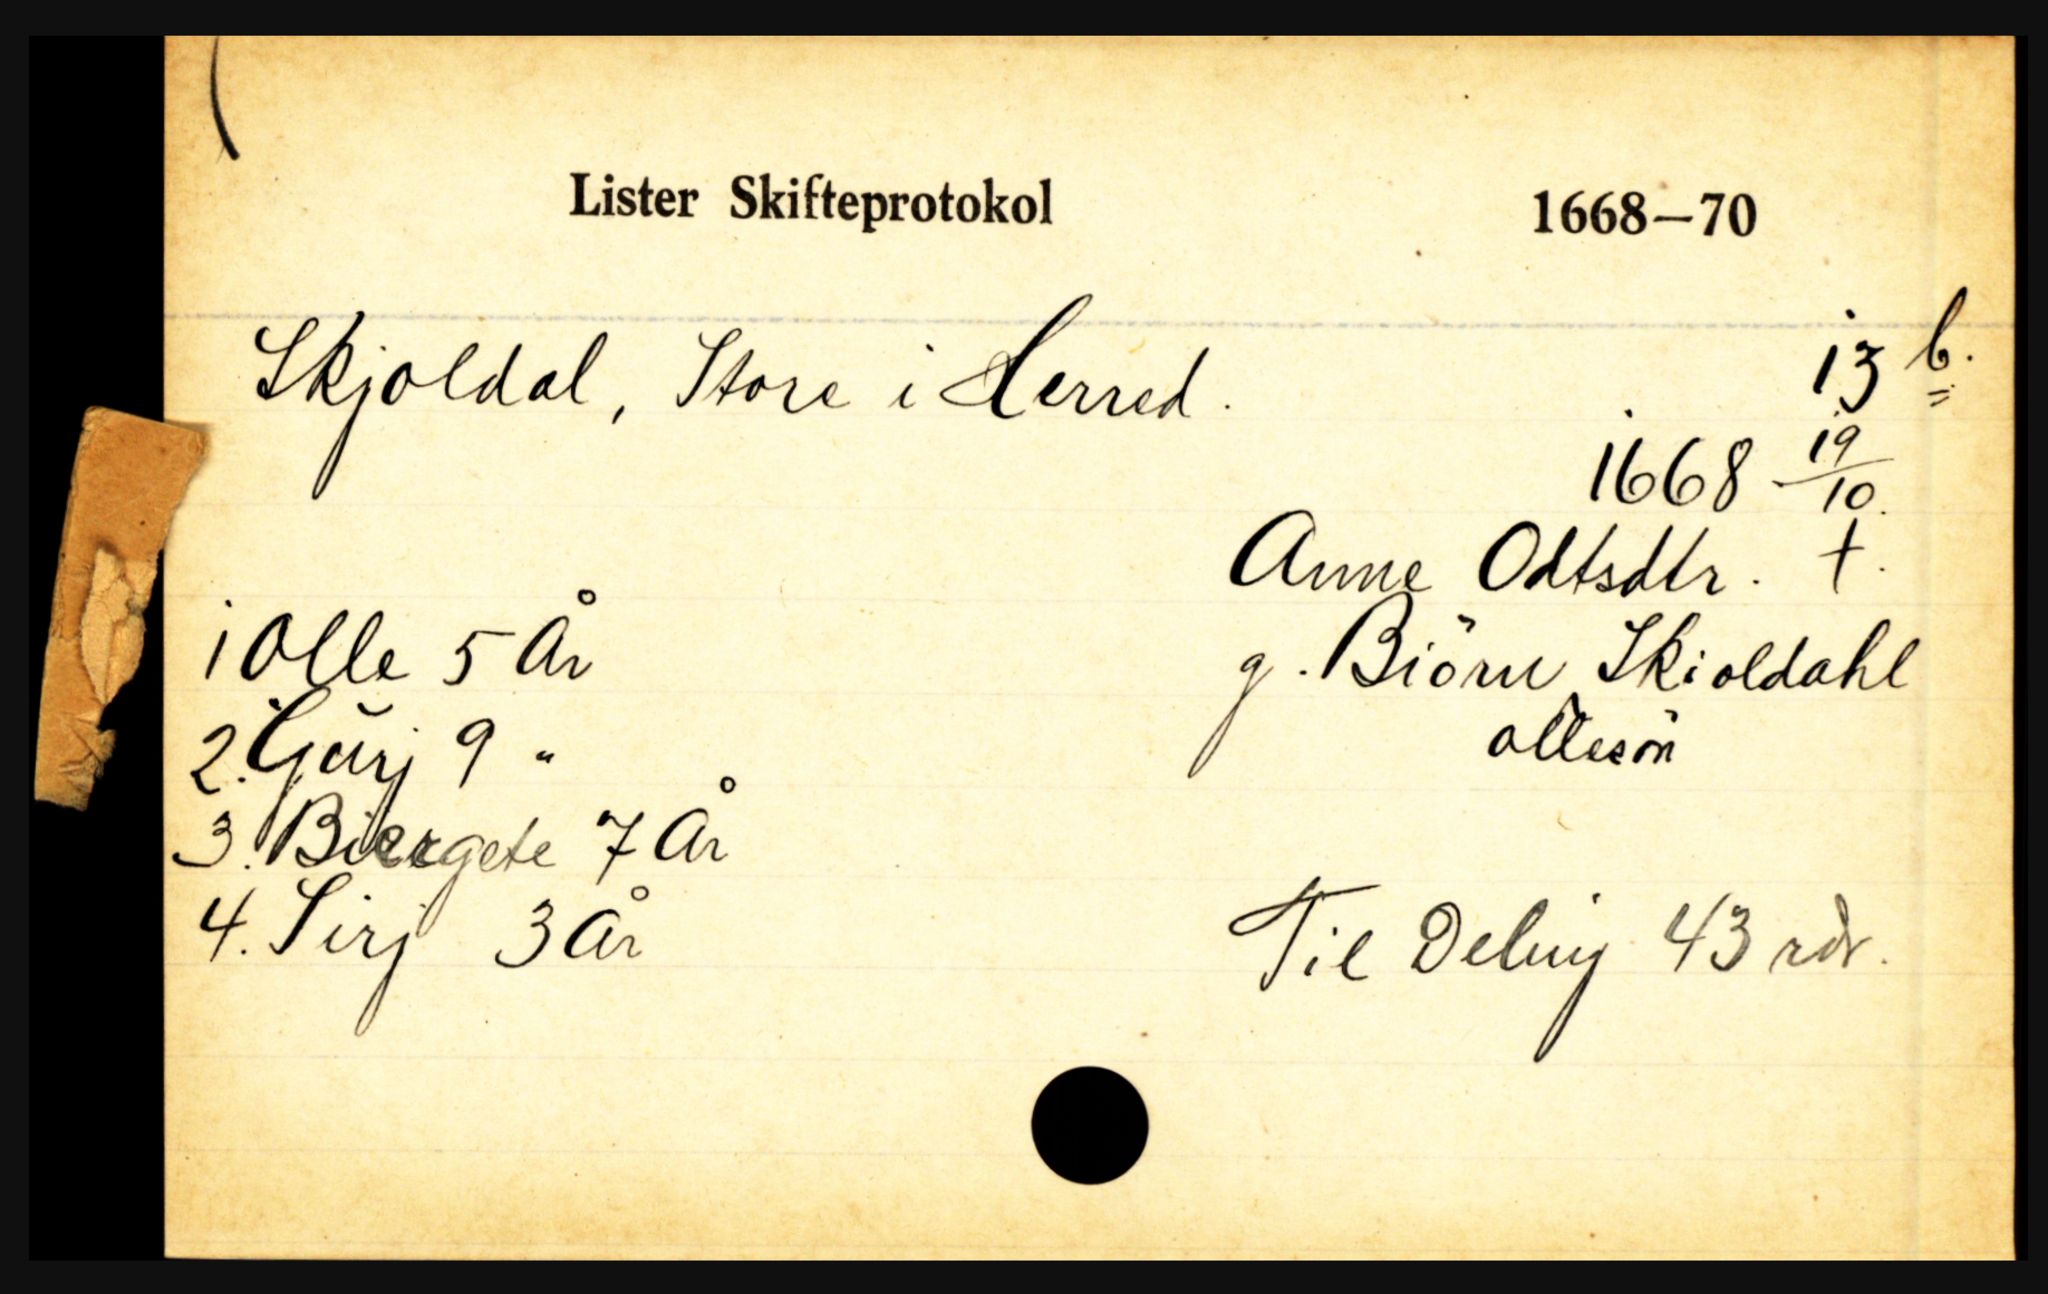 Lister Skifteprotokol 1668—70
Skjoldal, Store i Herred. 13 b.
1668 19/10.
Anne Odtsdtr. †.
1 Olle 5 År
g. Biörn Skioldahl
ollesön
2. Gurj 9 "
3. Biergete 7 År
4. Sirj 3 År
Til Deling 43 rdr.